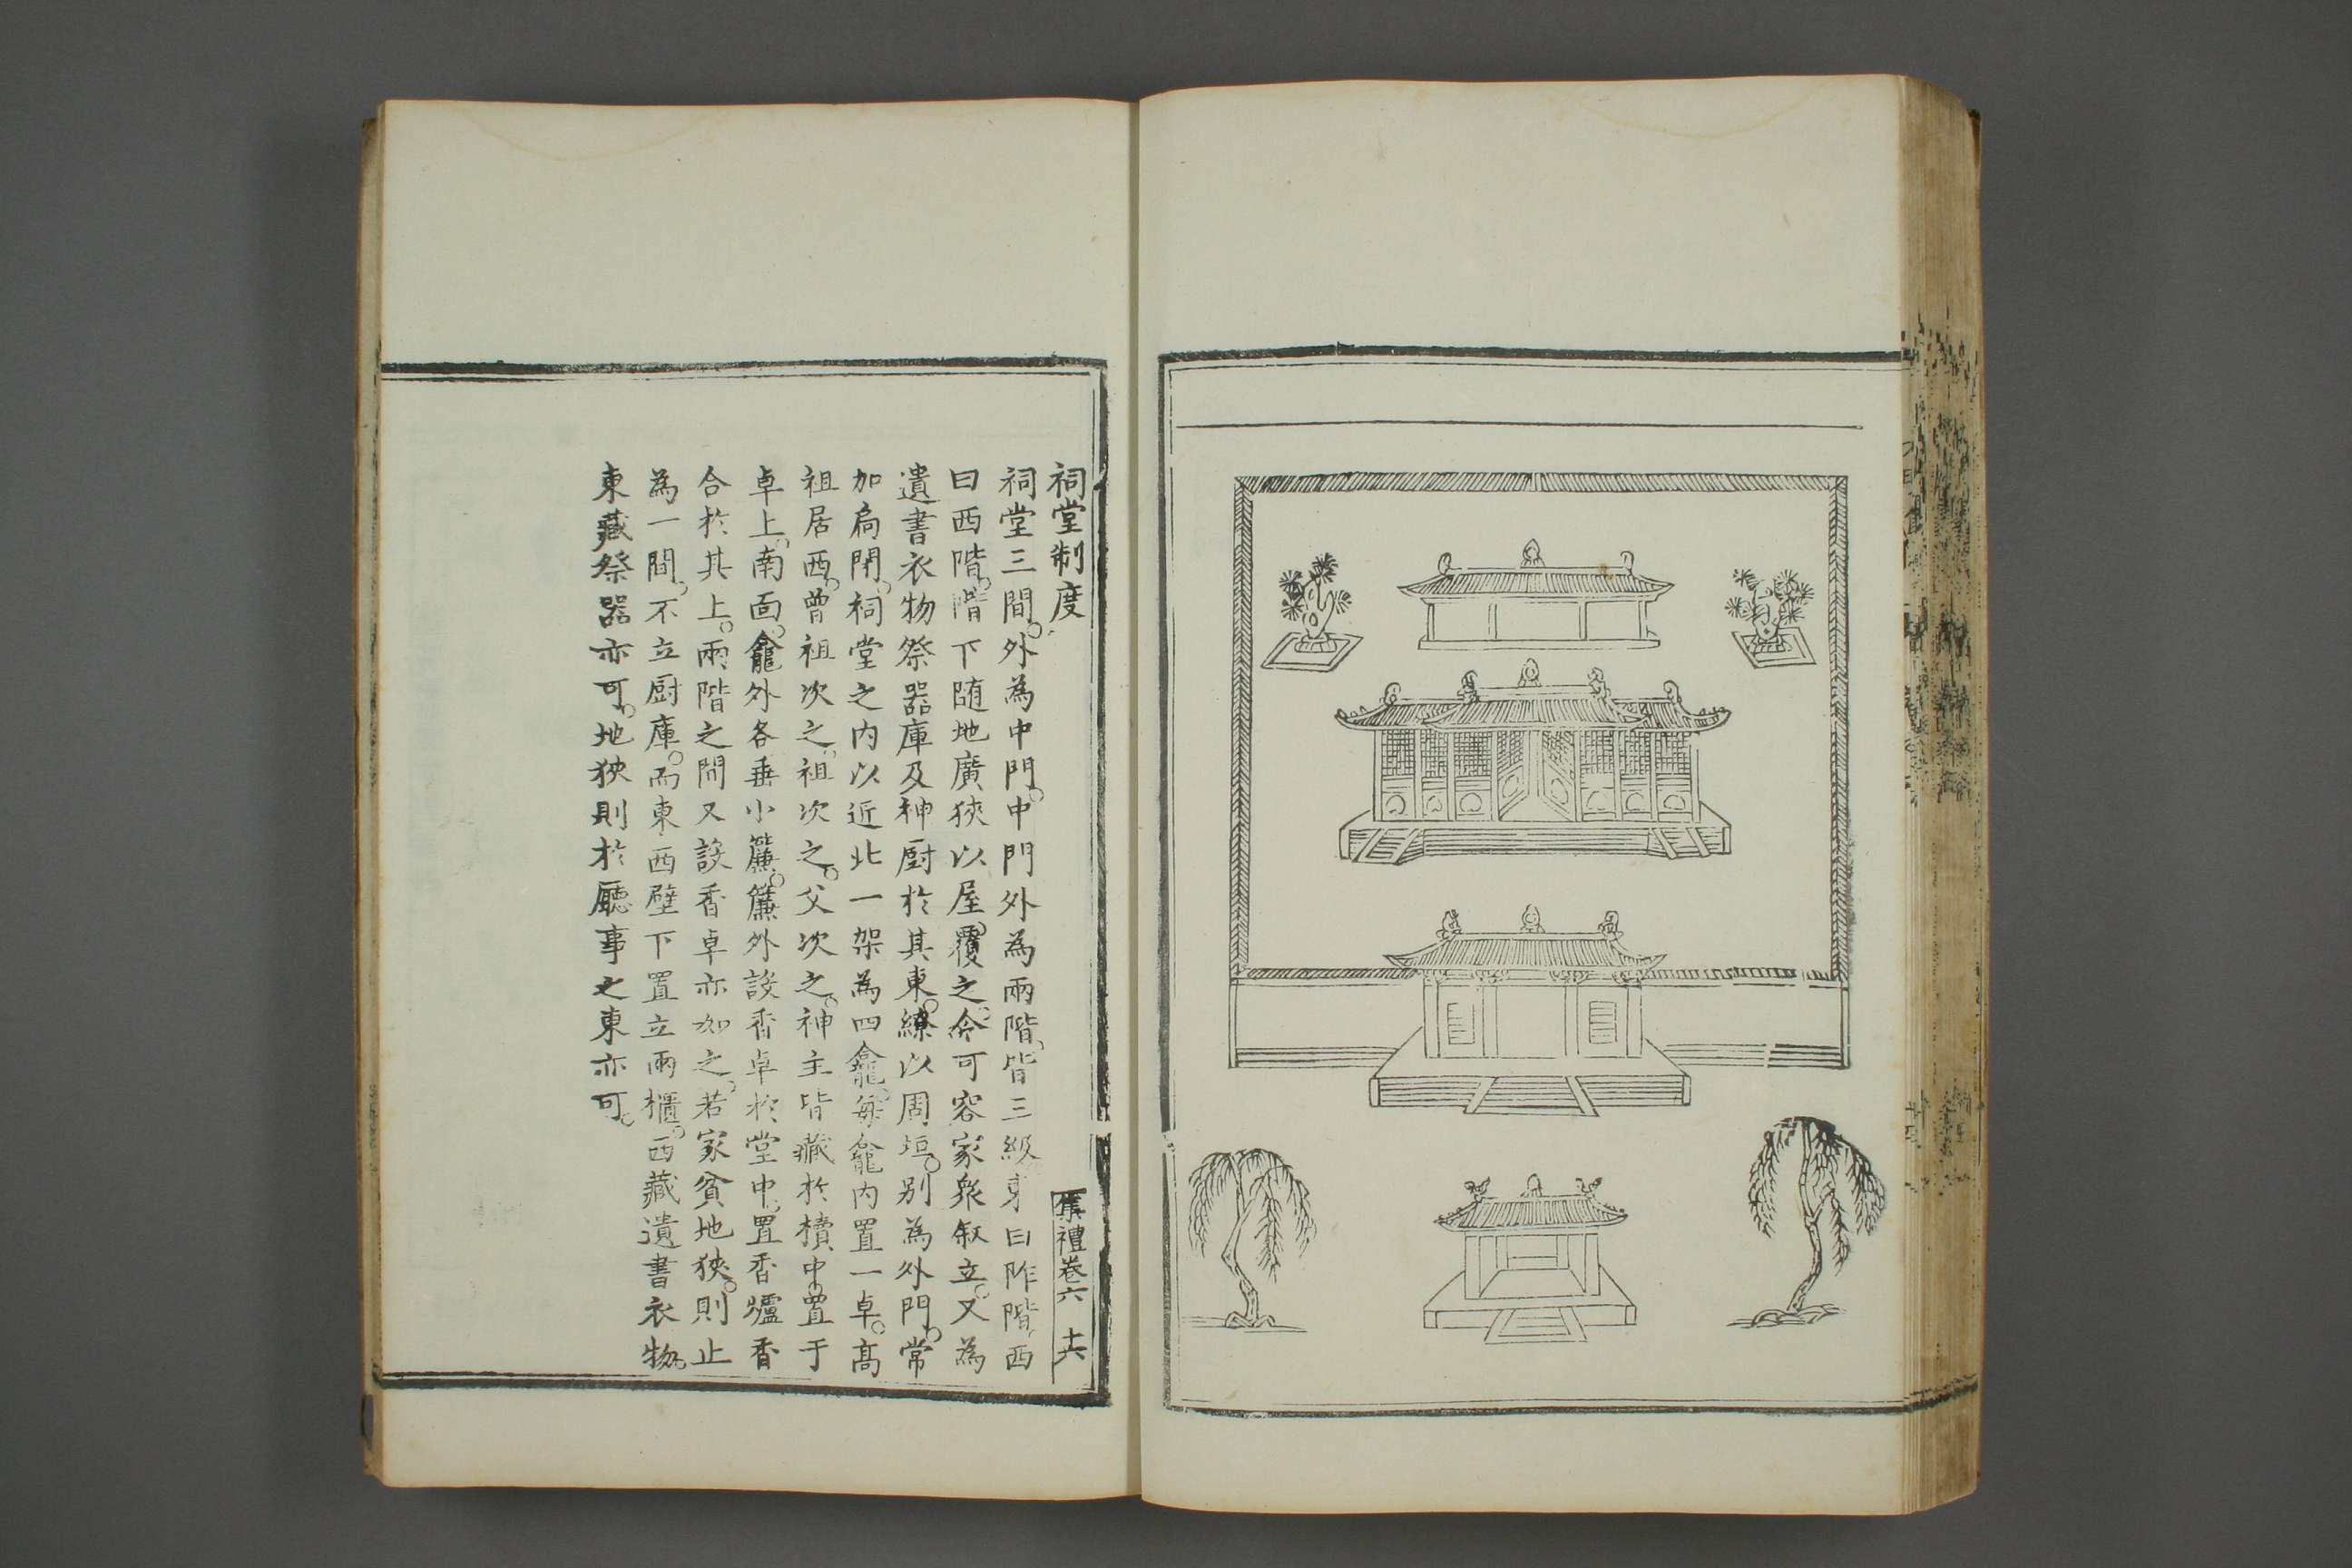 祠堂制度
祠堂三間。外為中門。中門外為兩階、皆三級東曰阼階、西
曰西階。階下随地廣狹以屋覆之、令可容家衆叙立。又為
遺書衣物祭器庫及神厨於其東。繚以周垣。別為外門。常
加扃閉、祠堂之內以近北一架為四龕、每龕內置一卓。高
祖居西。曾祖次之、祖次之、父次之。神主皆藏於櫝中、置于
卓上、南面。龕外各垂小簾。簾外設香卓於堂中、置香爐香
合於其上。兩階之間又設香卓亦如之、若家貧地狹。則止
為一間、不立厨庫。而東西壁下置立兩櫃。西藏遺書衣物。
東藏祭器亦可。地狹則於廳事之東亦可。
禮卷六 十六